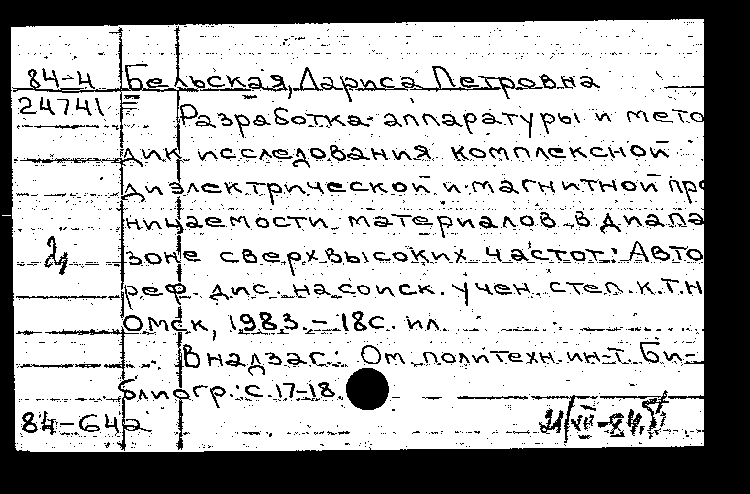 84-4 Бельская, Лариса Петровна
24741 Разработка аппаратуры и мето
дик исследования комплексной
диэлектрической и магнитной про
ницаемости материалов в диапа
зоне сверхвысоких частот: Авто
реф. дис. на соиск. учен. степ. к.т.н
Омск, 1983. - 18с. ил.
В надзаг.: Ом. политехн. ин-т. Би-
блиогр.: с. 17-18.
84-642